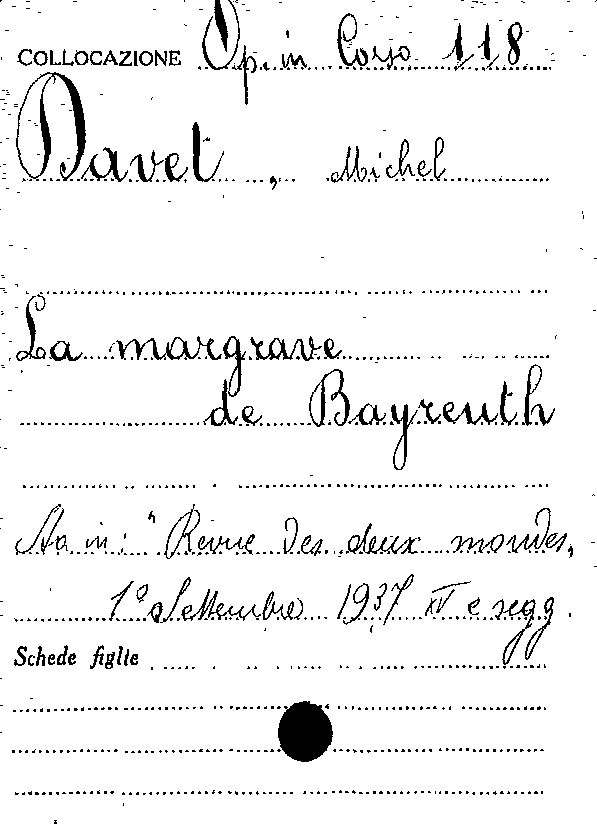 COLLOCAZIONE Op. in Corso 118
Davet, Michel
La margrave
de Bayreuth
Sta in: "Revue des deux mondes,
1º Settembre 1937 XV e segg.
Schede figlie